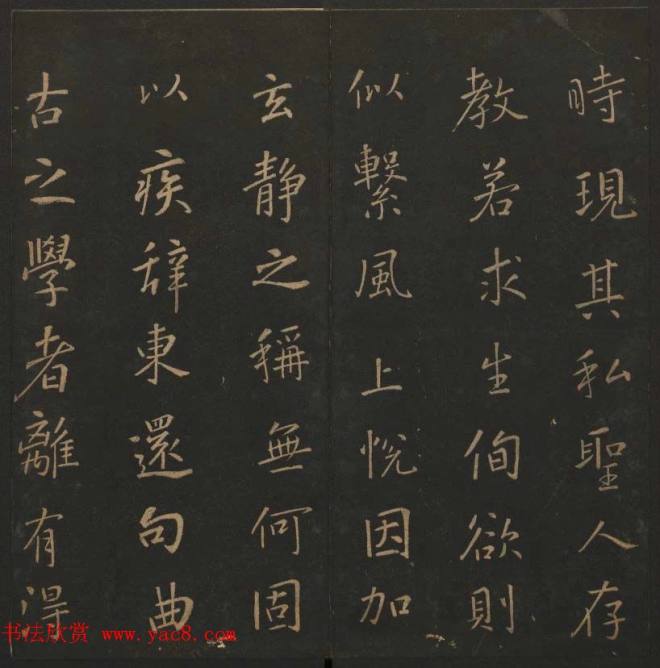 時現其私聖人存
教若求生佝欲則
似繫風上悅因加
玄靜之稱無何固
以疾辭東還句曲
古之學者離有得
书法欣赏 www.yac8.com